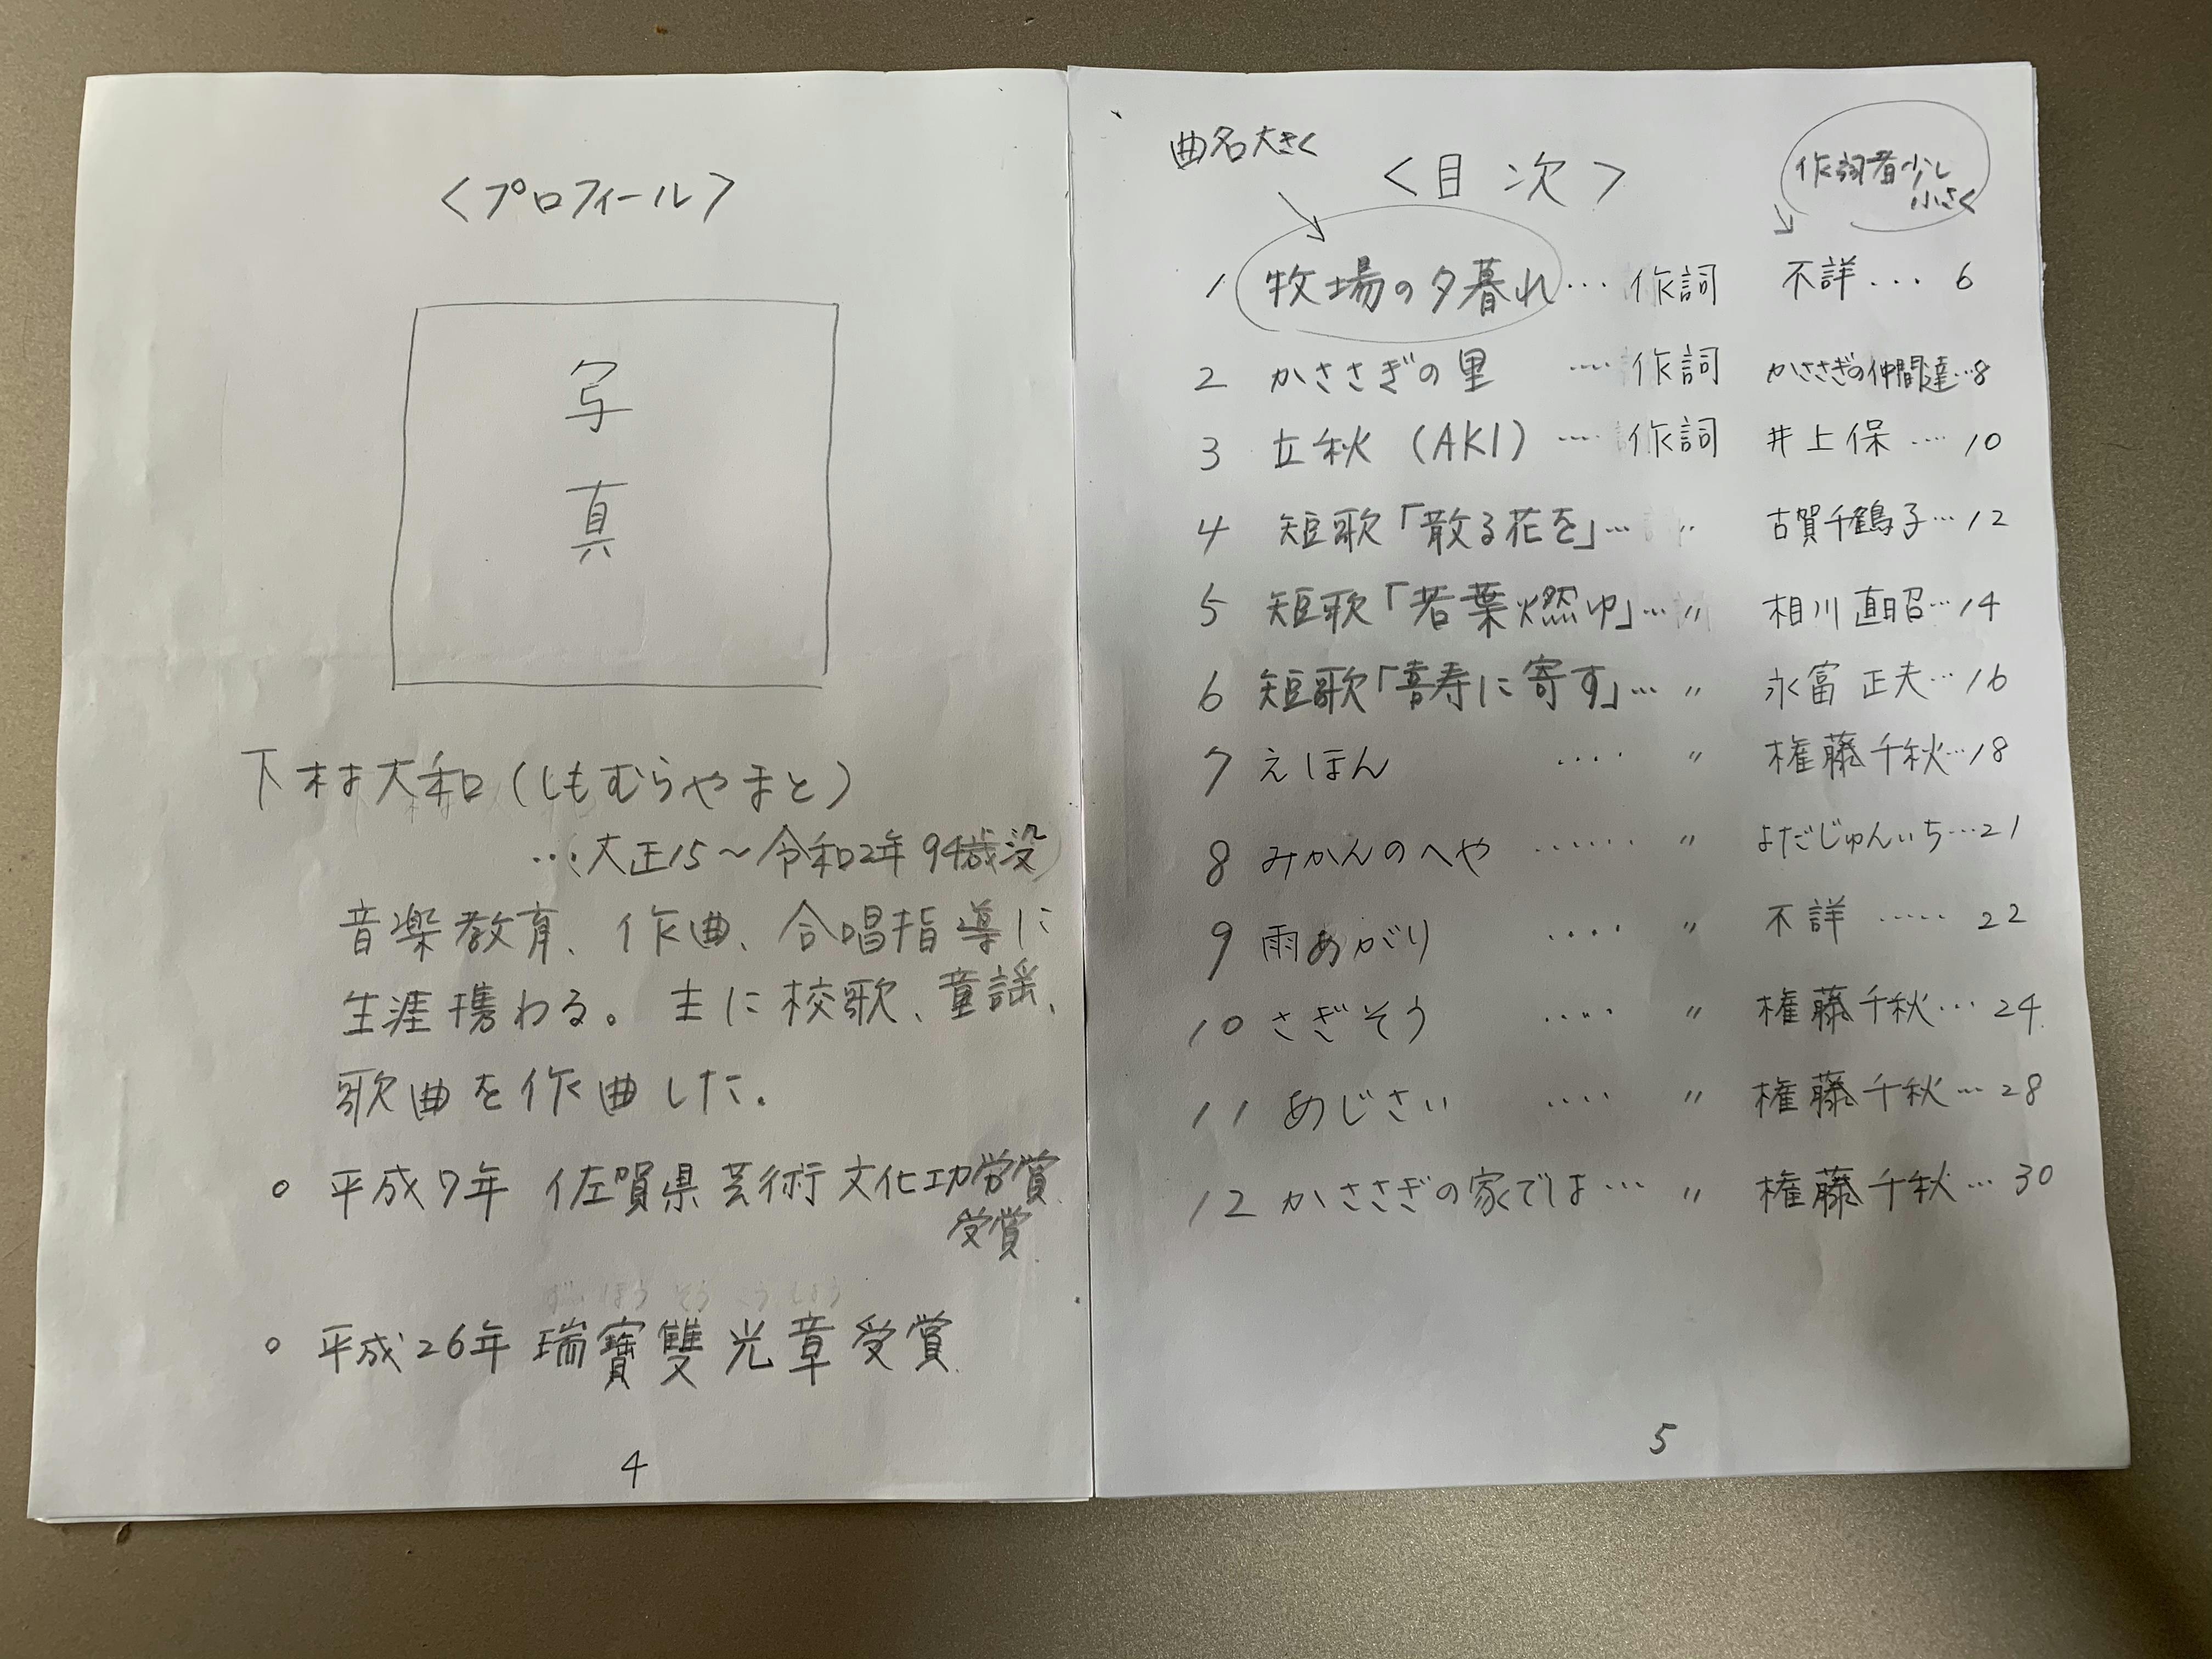 <プロフィール>
写
真
下村大和(しもむらやまと)
…(大正15～令和2年 94歳没)
音楽教育、作曲、合唱指導に
生涯携わる。主に校歌、童謡、
歌曲を作曲した。
○ 平成7年 佐賀県芸術文化功労賞
受賞.
ずいほうそうこうしょう
○ 平成26年 瑞寶雙光章受賞.
4
曲名大きく
<目次>
作詞者少し
小さく
1 牧場の夕暮れ… 作詞 不詳... 6
2 かささぎの里 …. 作詞 かささぎの仲間達…8
3 立秋(AKI) …. 作詞 井上保 …. 10
4 短歌「散る花を」… 〃 古賀千鶴子…12
5 短歌「若葉燃ゆ」… 〃 相川直昭…14
6 短歌「喜寿に寄す」… 〃 永富正夫…16
7 えほん .... 〃 権藤千秋…18
8 みかんのへや ...... 〃 よだじゅんいち…21
9 雨あがり .... 〃 不詳 ..... 22
10 さぎそう .... 〃 権藤千秋… 24
11 あじさい .... 〃 権藤千秋… 28
12 かささぎの家では… 〃 権藤千秋… 30
5